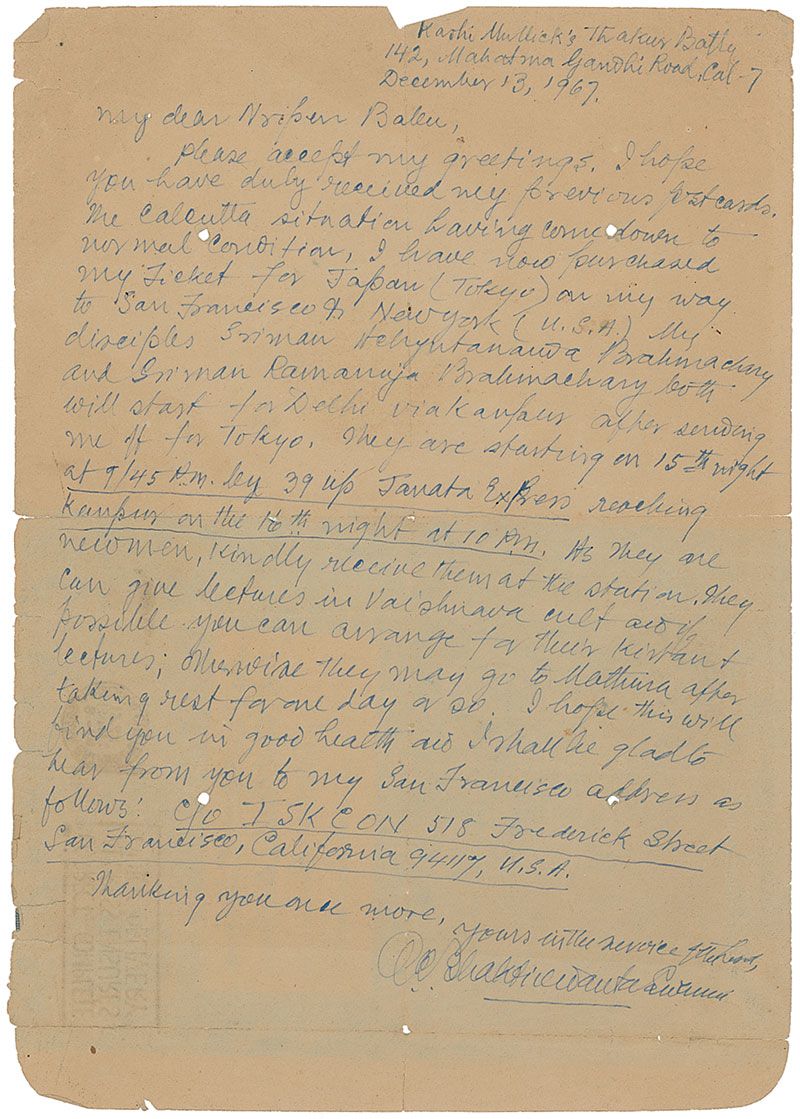 Kashi Mullick's Thakur Batly
142, Mahatma Gandhi Road, Cal-7
December 13, 1967.
My dear Nripen Babu,
Please accept my greetings. I hope
you have duly received my previous post cards.
The Calcutta situation having come down to
normal condition, I have now purchased
my Ticket for Japan (Tokyo) on my way
to San Francisco & Newyork (U.S.A.) My
disciples Sriman Achyutananda Brahmachary
and Sriman Ramanuja Brahmachary both
will start for Delhi via Kanpur after sending
me off for Tokyo. They are starting on 15th night
at 9/45 P.M. by 39 up Janata Express reaching
Kanpur on the 16th night at 10 P.M. As they are
newmen, kindly receive them at the station. They
can give lectures in Vaishnava cult and if
possible you can arrange for their Kirtan &
lectures; otherwise they may go to Mathura after
taking rest for one day or so. I hope this will
find you in good health and I shall be glad to
hear from you to my San Francisco address as
follows: C/o ISKCON 518 Frederick Street
San Francisco, California 94117, U.S.A.
Thanking you once more,
yours in the service of the Lord,
A.C. Bhaktivedanta Swami